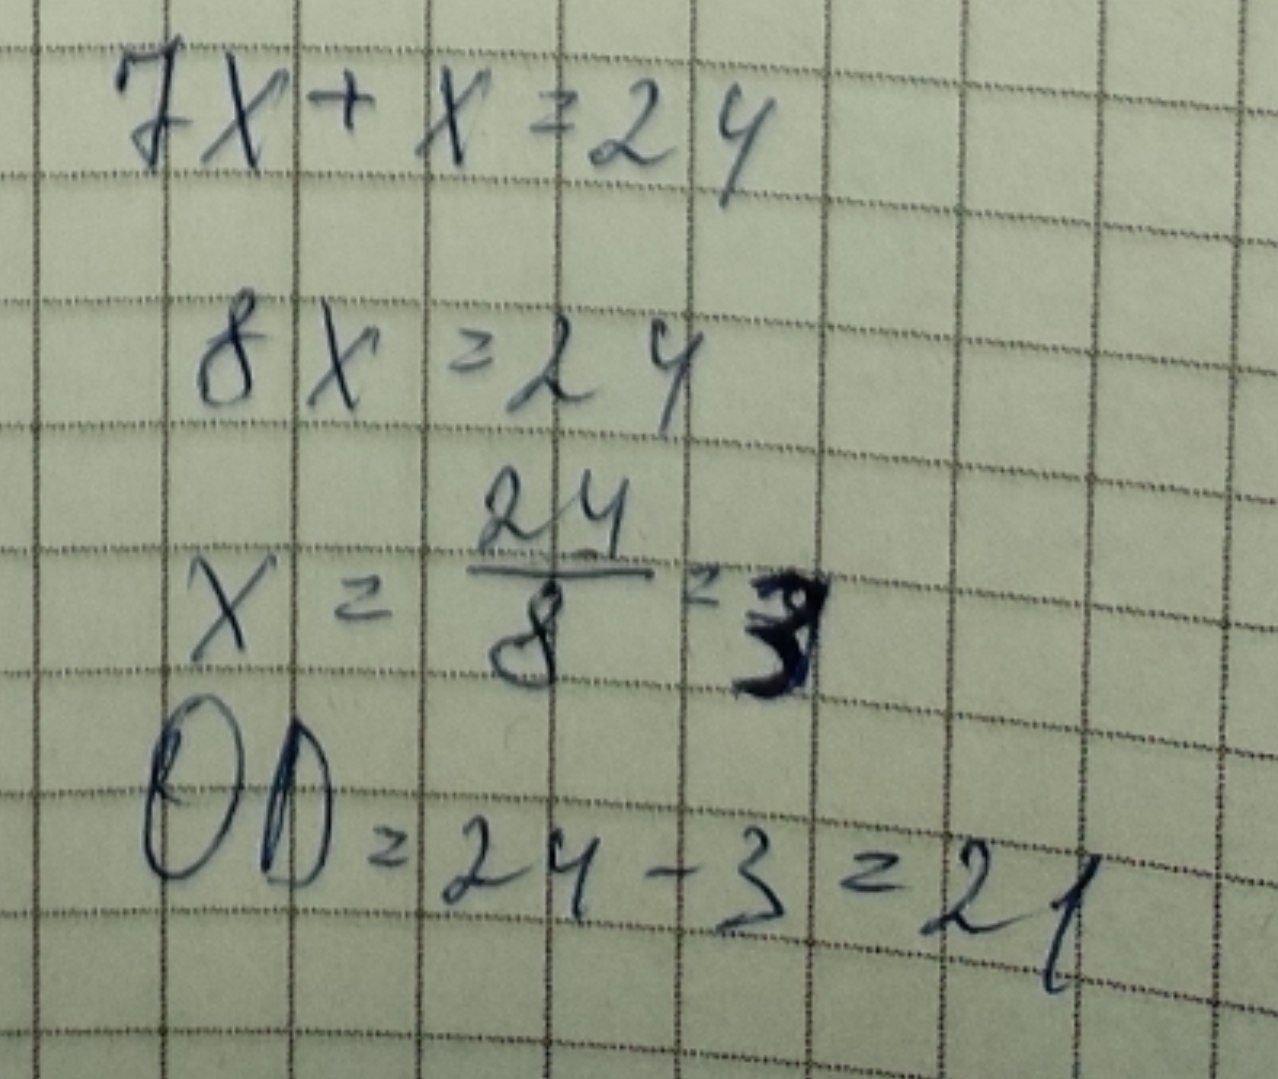 7x + x = 24
8x = 24
x = 24/8 = 3
OD = 24 - 3 = 21